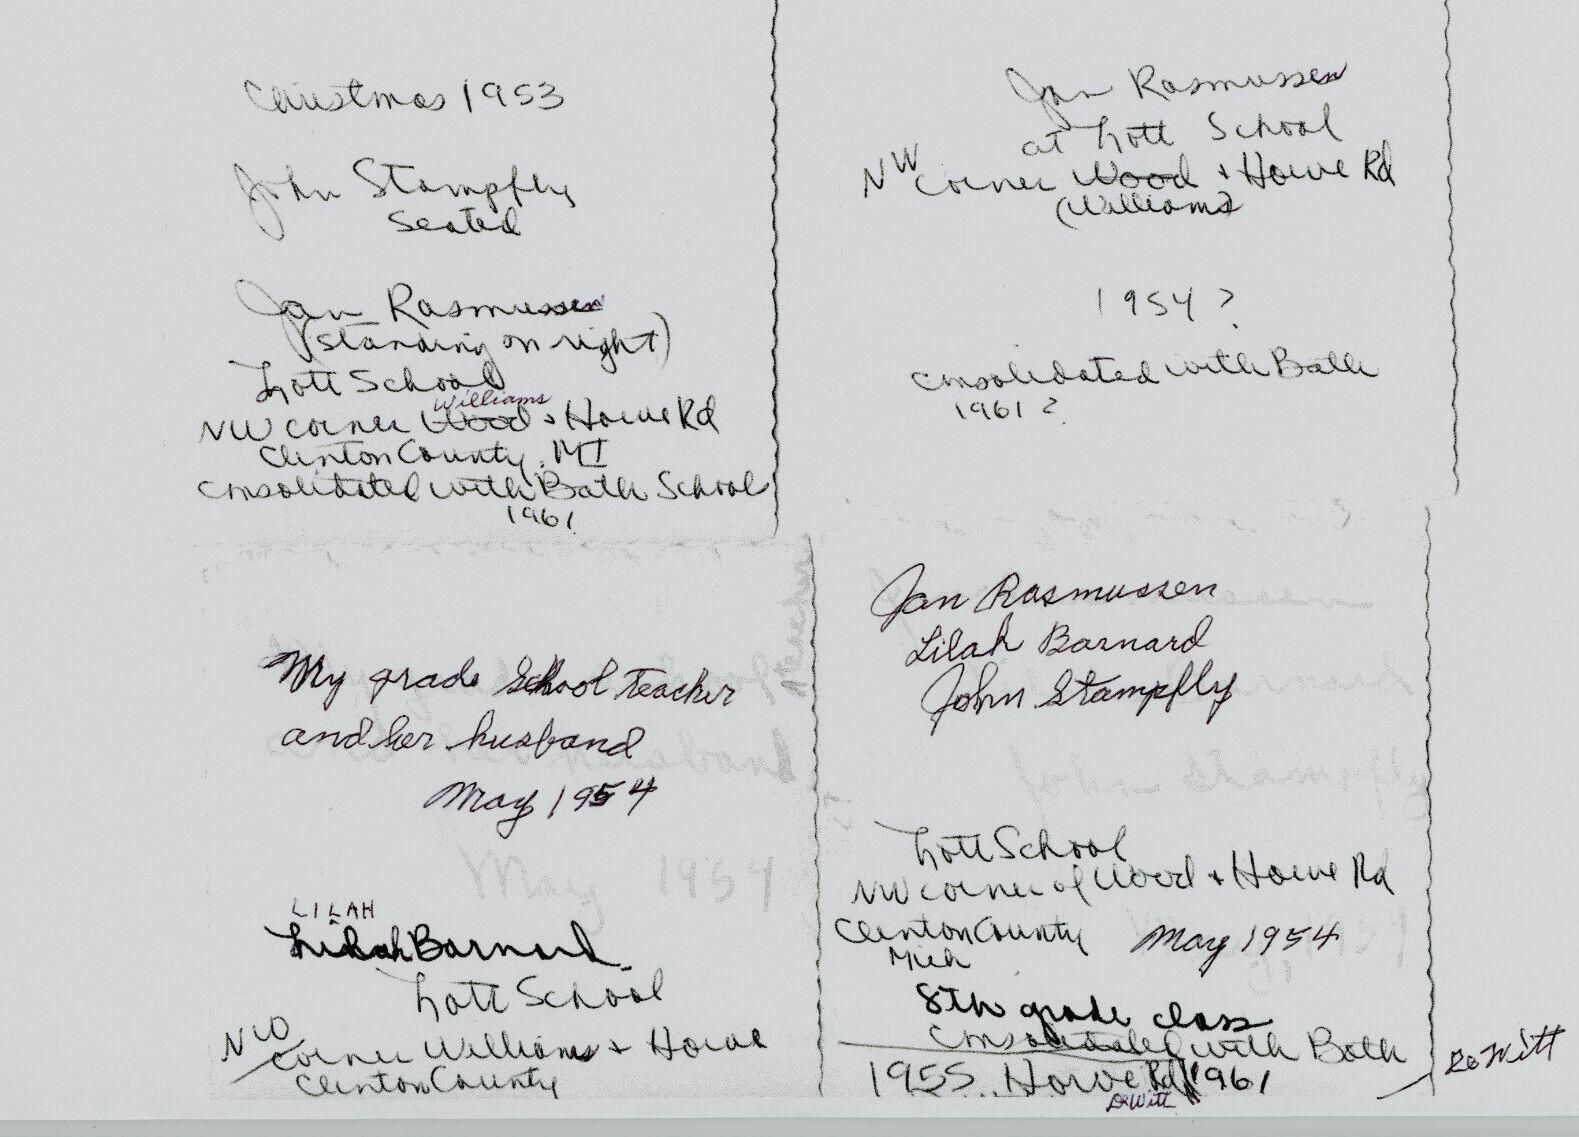 Christmas 1953
John Stampfly
Seated
Jan Rasmussen
(standing on right)
Lott School
Williams
NW corner Wood & Howe Rd
Clinton County, MI
Consolidated with Bath School
1961
Jan Rasmussen
at Lott School
NW corner Wood & Howe Rd
(Williams)
1954?
Consolidated with Bath
1961?
My grade School Teacher
and her husband
May 1954
LILAH
Lilah Barnard
Lott School
NW
corner Williams & Howe
Clinton County
Jan Rasmussen
Lilah Barnard
John Stampfly
Lott School
NW corner of Wood & Howe Rd
Clinton County May 1954
Mich
8th grade class
Consolidated with Bath
1955 Howe Rd 1961
DeWitt
DeWitt